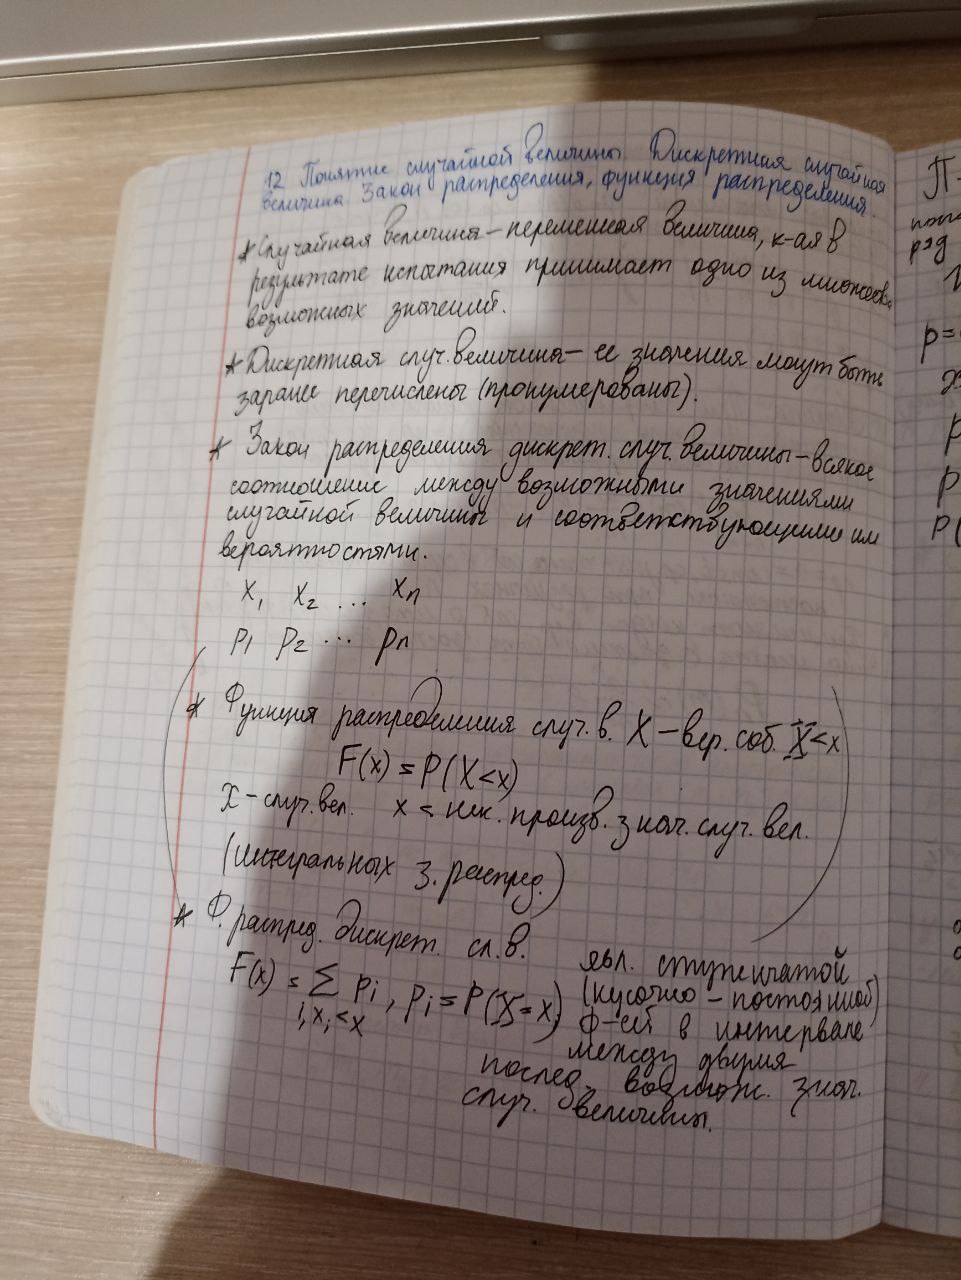 12 Понятие случайной величины. Дискретная случайная
величина. Закон распределения, функция распределения.
* Случайная величина – переменная величина, к-ая в
результате испытания принимает одно из множества
возможных значений.
* Дискретная случ. величина – ее значения могут быть
заранее перечислены (пронумерованы).
* Закон распределения дискрет. случ. величины – всякое
соотношение между возможными значениями
случайной величины и соответствующими им
вероятностями.
x₁ x₂ ... xn
p₁ p₂ ... pn
* Функция распределения случ. в. X – вер. соб. X < x
F(x) = P(X < x)
X – случ. вел. x = нек. произв. знач. случ. вел.
(интегральных з. распред.)
* Ф. распред. дискрет. сл. в.
F(x) = Σ pi , pi = P(X = xi)
i, xi < x
явл. ступенчатой
(кусочно – постоянной)
ф-ей в интервале
между двумя
послед. возмож. знач.
случ. величины.
П-
ряд
p=
p
p
P(